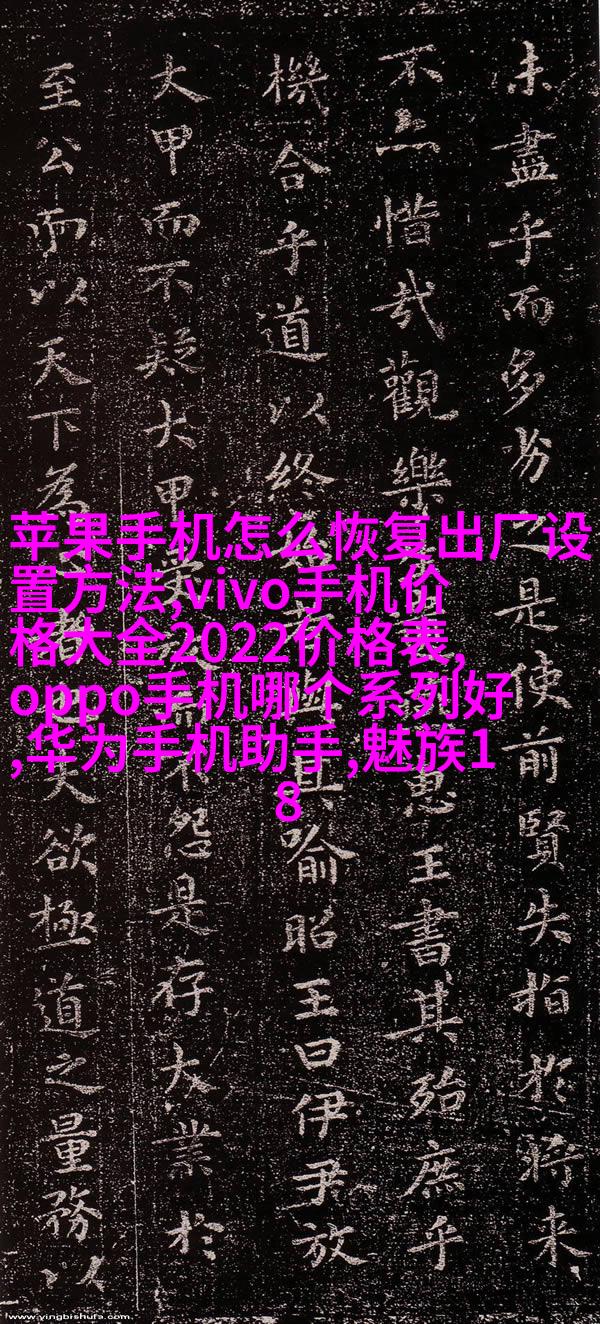 未盡乎而多劣之是使前賢失指於將来
不亦惜哉觀樂惠王書其殆庶乎
機合乎道以終其喻昭王曰伊尹放
大甲而不疑大甲不怨是存大業於
至公而以天下為夫欲極道之量務以
苹果手机怎么恢复出厂设
置方法,vivo手机价
格大全2022价格表,
oppo手机哪个系列好
,华为手机助手,魅族1
8
www.yingbishufa.com